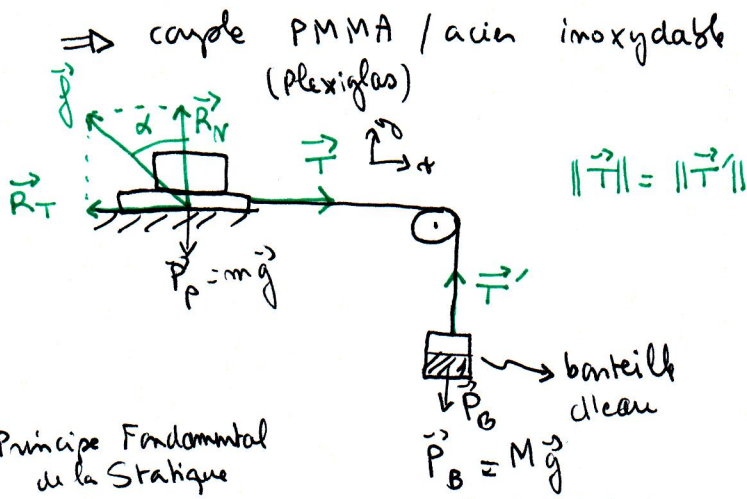 ⇒ couple PMMA / acier inoxydable
(plexiglas)
f⃗
α
R⃗_N
T⃗
y
x
||T⃗|| = ||T⃗'||
R⃗_T
P⃗_p = mg⃗
T⃗'
bouteille
d'eau
P⃗_B
P⃗_B = Mg⃗
Principe Fondamental
de la Statique